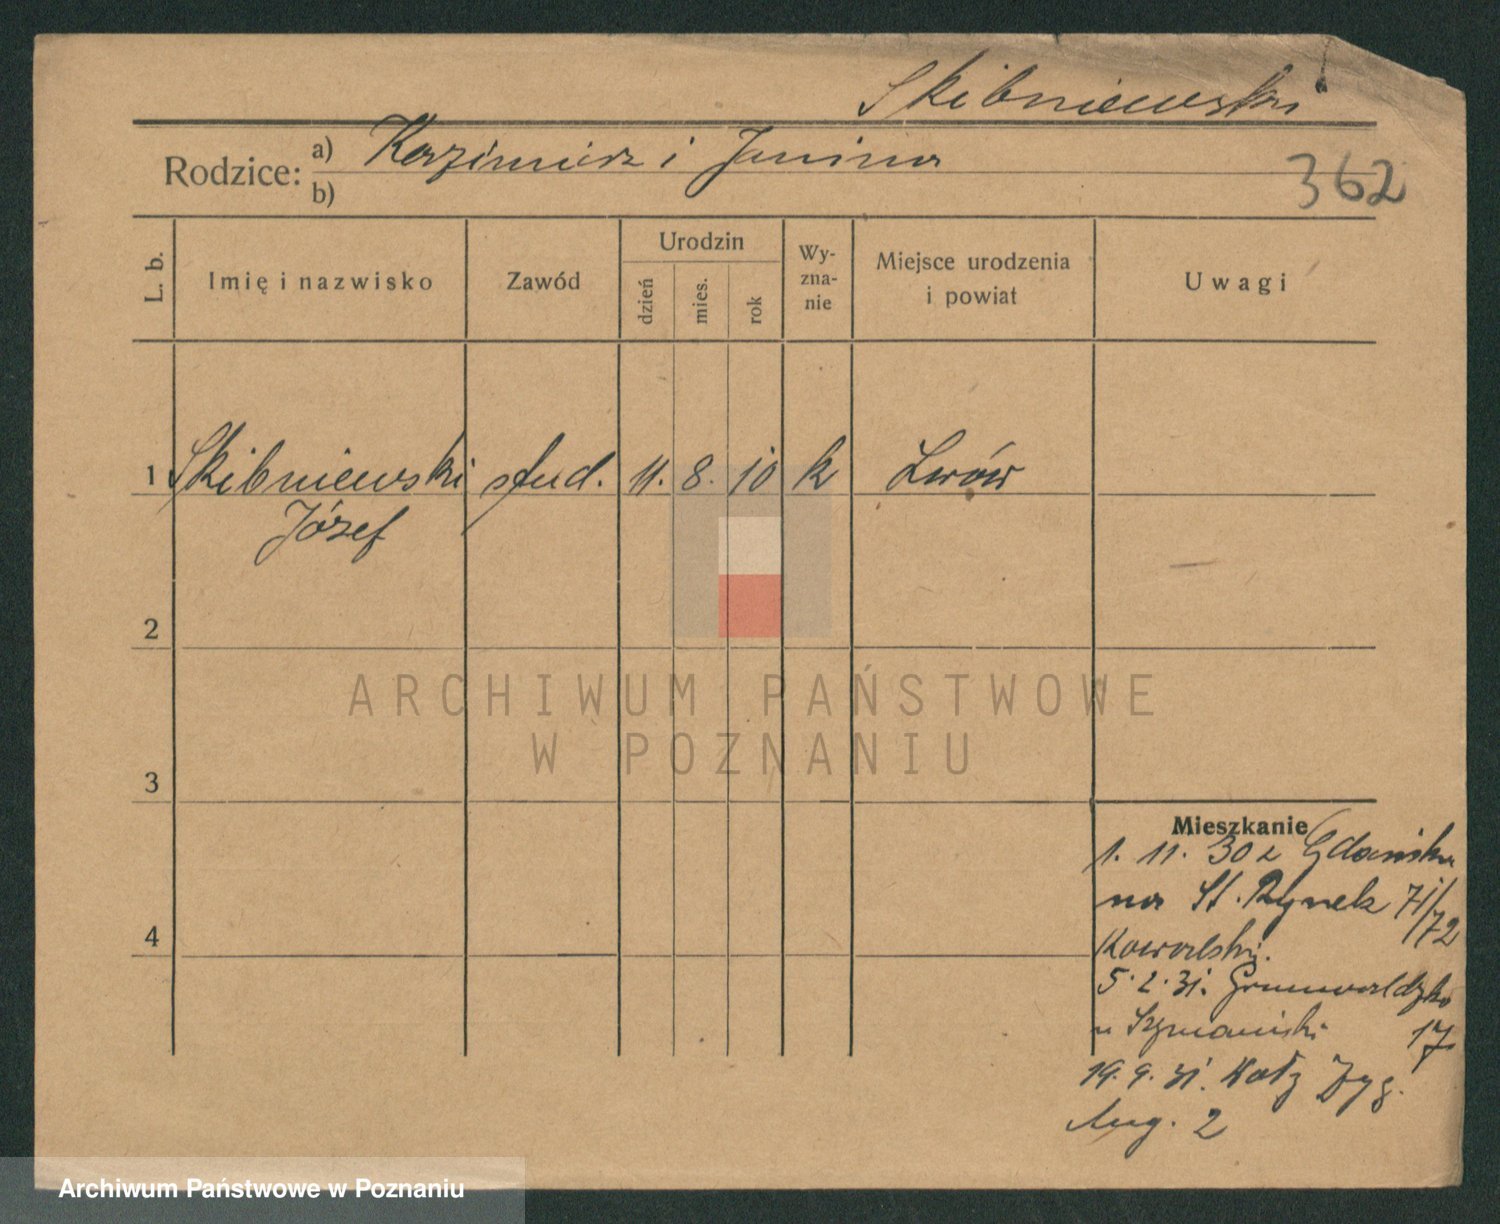 Skibniewski
Rodzice: a) Kazimierz i Janina
b)
362
L. b.
Imię i nazwisko
Zawód
Urodzin
dzień
mies.
rok
Wy-
zna-
nie
Miejsce urodzenia
i powiat
Uwagi
1 Skibniewski stud. 11. 8. 10 k Lwów
Józef
2
3
4
ARCHIWUM PAŃSTWOWE
W POZNANIU
Mieszkanie
1. 11. 30 z Gdańska
na St. Rynek 71/72
Kowalski.
5. 2. 31. Grunwaldzka
u Szymański 17
19. 9. 31. Zyg.
Aug. 2
Archiwum Państwowe w Poznaniu